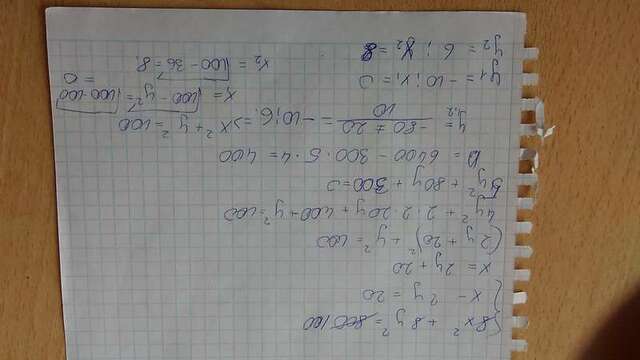 {8x² + 8y² = 800 100
{x - 2y = 20
x = 2y + 20
(2y + 20)² + y² = 100
4y² + 2·2·20y + 400 + y² = 100
5y² + 80y + 300 = 0
D = 6400 - 300·5·4 = 400
y₁,₂ = (-80 ± 20)/10 = -10; 6. => x² + y² = 100
x = √(100 - y²) = √(100-100) = 0
y₁ = -10; x₁ = 0
x₂ = √(100 - 36) = 8.
y₂ = 6; x₂ = 8